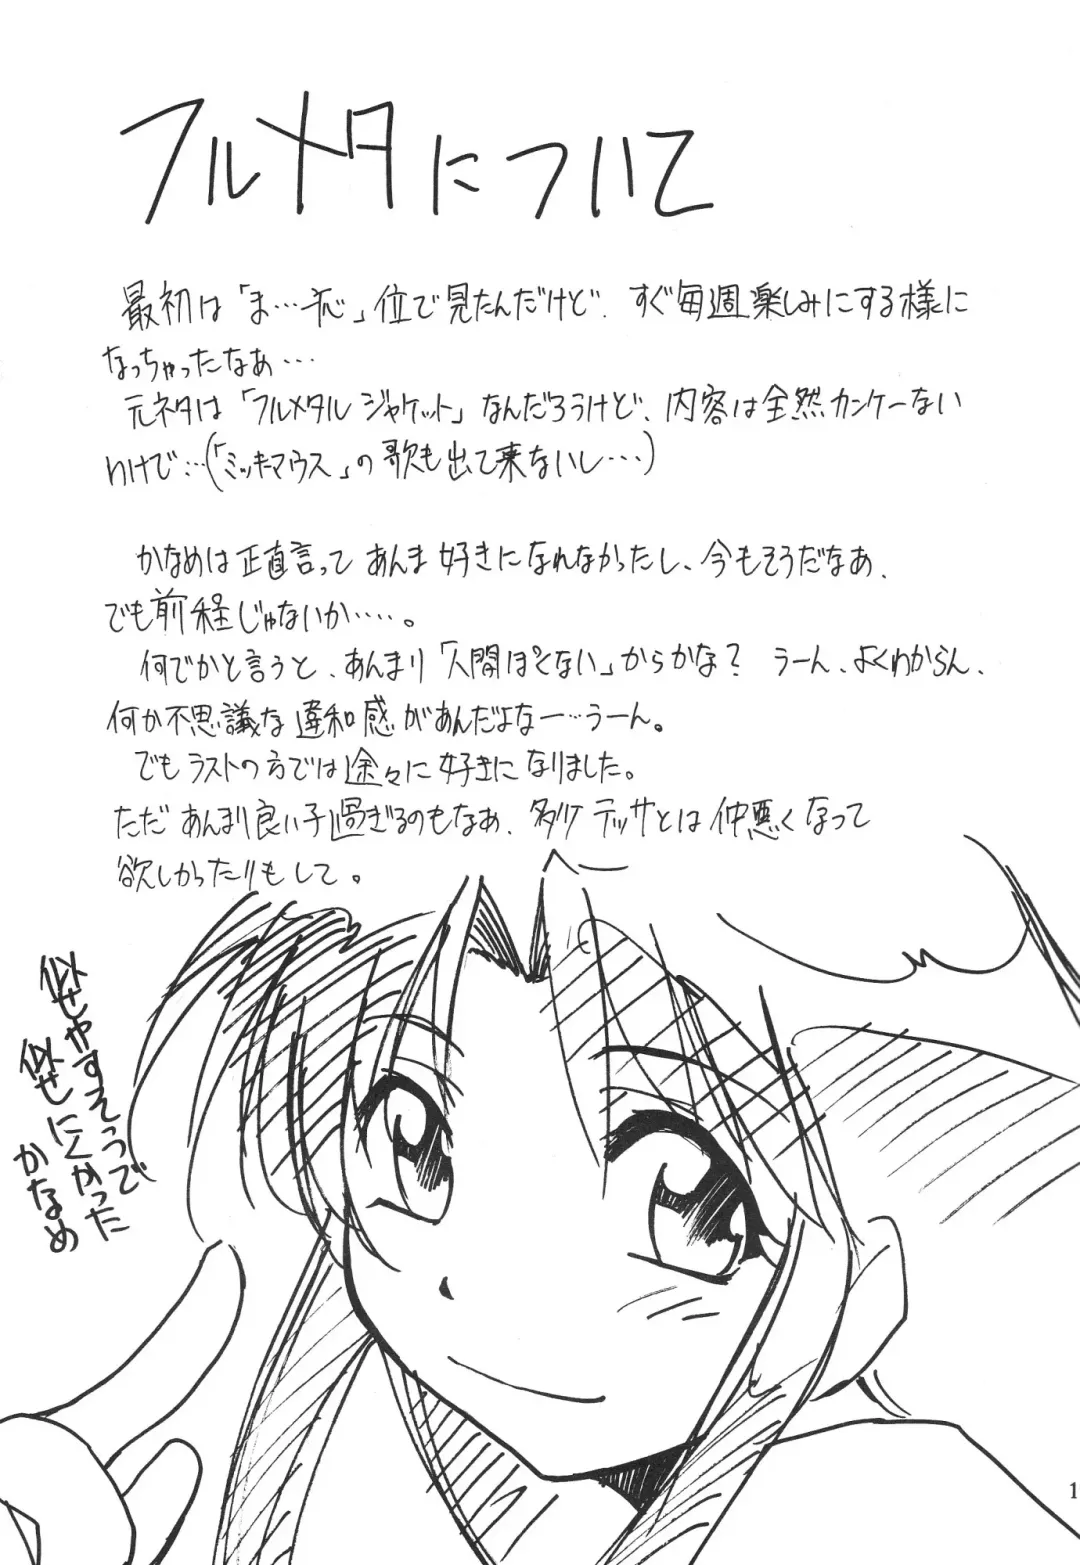 フルメタについて
最初は「ま…ボ」位で見たんだけど、すぐ毎週楽しみにする様に
なっちゃったなぁ…
元ネタは「フルメタルジャケット」なんだろうけど、内容は全然カンケーない
わけで…(「ミッキーマウス」の歌も出て来ないし…)
かなめは正直言ってあんま好きになれなかったし、今もそうだなぁ、
でも前程じゃないか……。
何でかと言うと、あんまり「人間ぽくない」からかな? うーん、よくわからん、
何か不思議な違和感があんだよなー…うーん。
でもラストの方では徐々に好きになりました。
ただあんまり良い子過ぎるのもなぁ、多少テッサとは仲悪くなって
欲しかったりもして。
似せやすそうで
似せにくかった
かなめ
1